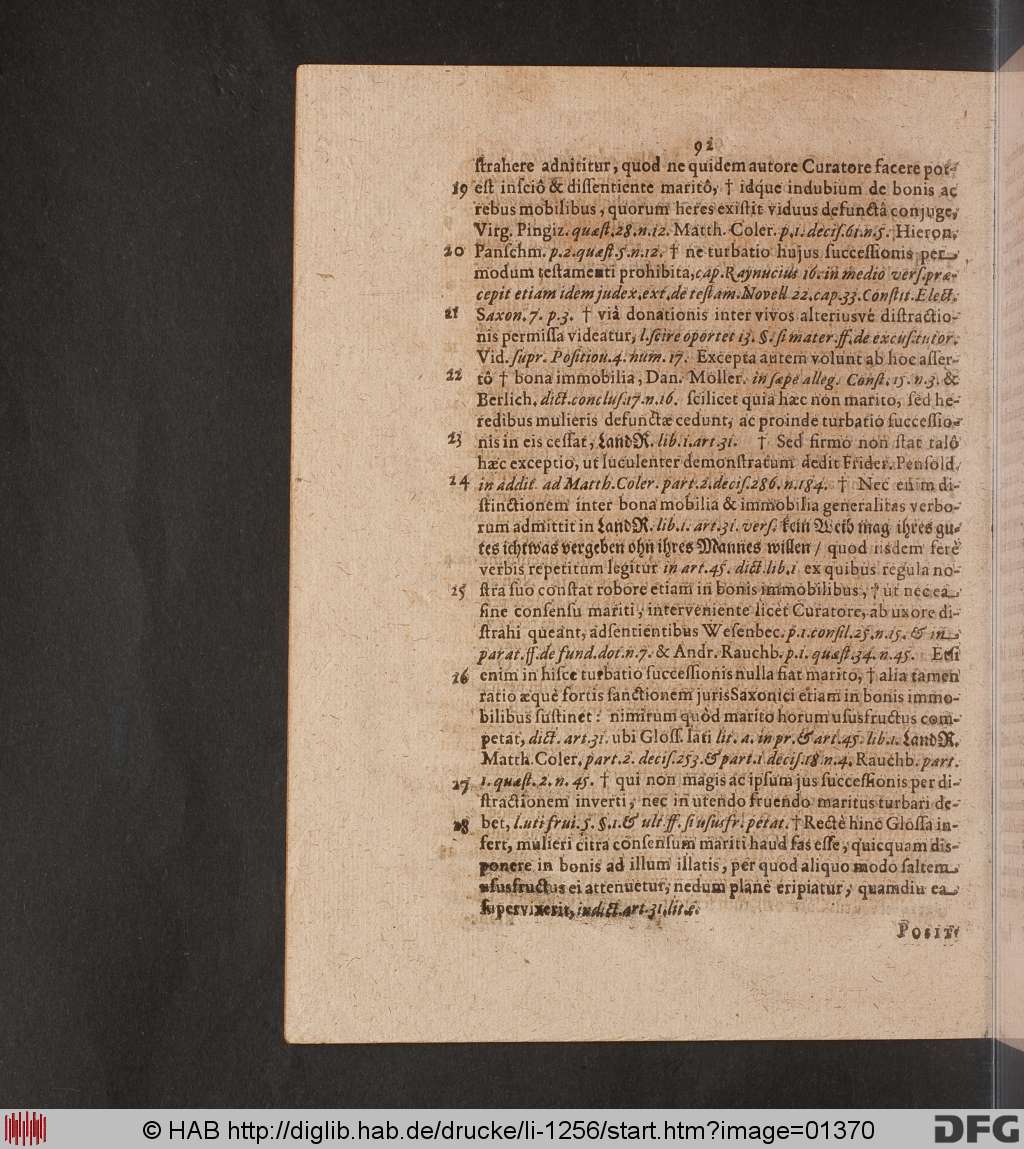 92
strahere adnititur, quod ne quidem autore Curatore facere pot-
19 est insciô & dissentiente maritô, † idque indubium de bonis ac
rebus mobilibus, quorum heres existit viduus defunctâ conjuge,
Virg. Pingiz. quæst. 28. n. 12. Matth. Coler. p. 1. decis. 61. n. 5. Hieron.
20 Panschm. p. 2. quæst. 5. n. 12. † ne turbatio hujus successionis per
modum testamenti prohibita, cap. Raynucius 16. in medio vers. præ-
cepit etiam idem judex. ext. de testam. Novell 22. cap. 33. Constit. Elect.
21 Saxon. 7. p. 3. † viâ donationis inter vivos alteriusvé distractio-
nis permissa videatur, l. scire oportet 13. §. si mater. ff. de excus. tutor.
Vid. supr. Position. 4. num. 17. Excepta autem volunt ab hoc asser-
22 tô † bona immobilia, Dan. Möller. in sæpè alleg. Const. 15. n. 3. &
Berlich. dict. conclus. 17. n. 16. scilicet quia hæc non marito, sed he-
redibus mulieris defunctæ cedunt, ac proinde turbatio successio-
23 nis in eis cessat, LandR. lib. 1. art. 31. † Sed firmo non stat talô
hæc exceptio, ut luculenter demonstratum dedit Frider. Pensold.
24 in addit. ad Matth. Coler. part. 2. decis. 286. n. 184. † Nec enim di-
stinctionem inter bona mobilia & immobilia generalitas verbo-
rum admittit in LandR. lib. 1. art. 31. vers. kein Weib mag ihres gu-
tes ichtwas vergeben ohn ihres Mannes willen / quod iisdem ferè
verbis repetitum legitur in art. 45. dict. lib. 1 ex quibus regula no-
25 stra suo constat robore etiam in bonis immobilibus, † ut nec ea
sine consensu mariti, interveniente licet Curatore, ab uxore di-
strahi queant, adsentientibus Wesenbec. p. 1. consil. 25. n. 15. & in
parat. ff. de fund. dot. n. 7. & Andr. Rauchb. p. 1. quæst. 34. n. 45. Etsi
26 enim in hisce turbatio successionis nulla fiat marito, † alia tamen
ratio æquè fortis sanctionem juris Saxonici etiam in bonis immo-
bilibus sustinet: nimirum quòd marito horum ususfructus com-
petat, dict. art. 31. ubi Gloss. lati lit. a. in pr. & art. 45. lib. 1. LandR.
Matth. Coler. part. 2. decis. 253. & part. 1 decis. 18. n. 4. Rauchb. part.
27 1. quæst. 2. n. 45. † qui non magis ac ipsum jus successionis per di-
stractionem inverti, nec in utendo fruendo maritus turbari de-
28 bet, l. uti frui. 5. §. 1. & ult ff. si ususfr. petat. † Rectè hinc Glossa in-
fert, mulieri citra consensum mariti haud fas esse, quicquam dis-
ponere in bonis ad illum illatis, per quod aliquo modo saltem
ususfructus ei attenuetur, nedum planè eripiatur, quamdiu ea
supervixerit, in dict. art. 31. lit. c.
Posit.
© HAB http://diglib.hab.de/drucke/li-1256/start.htm?image=01370
DFG